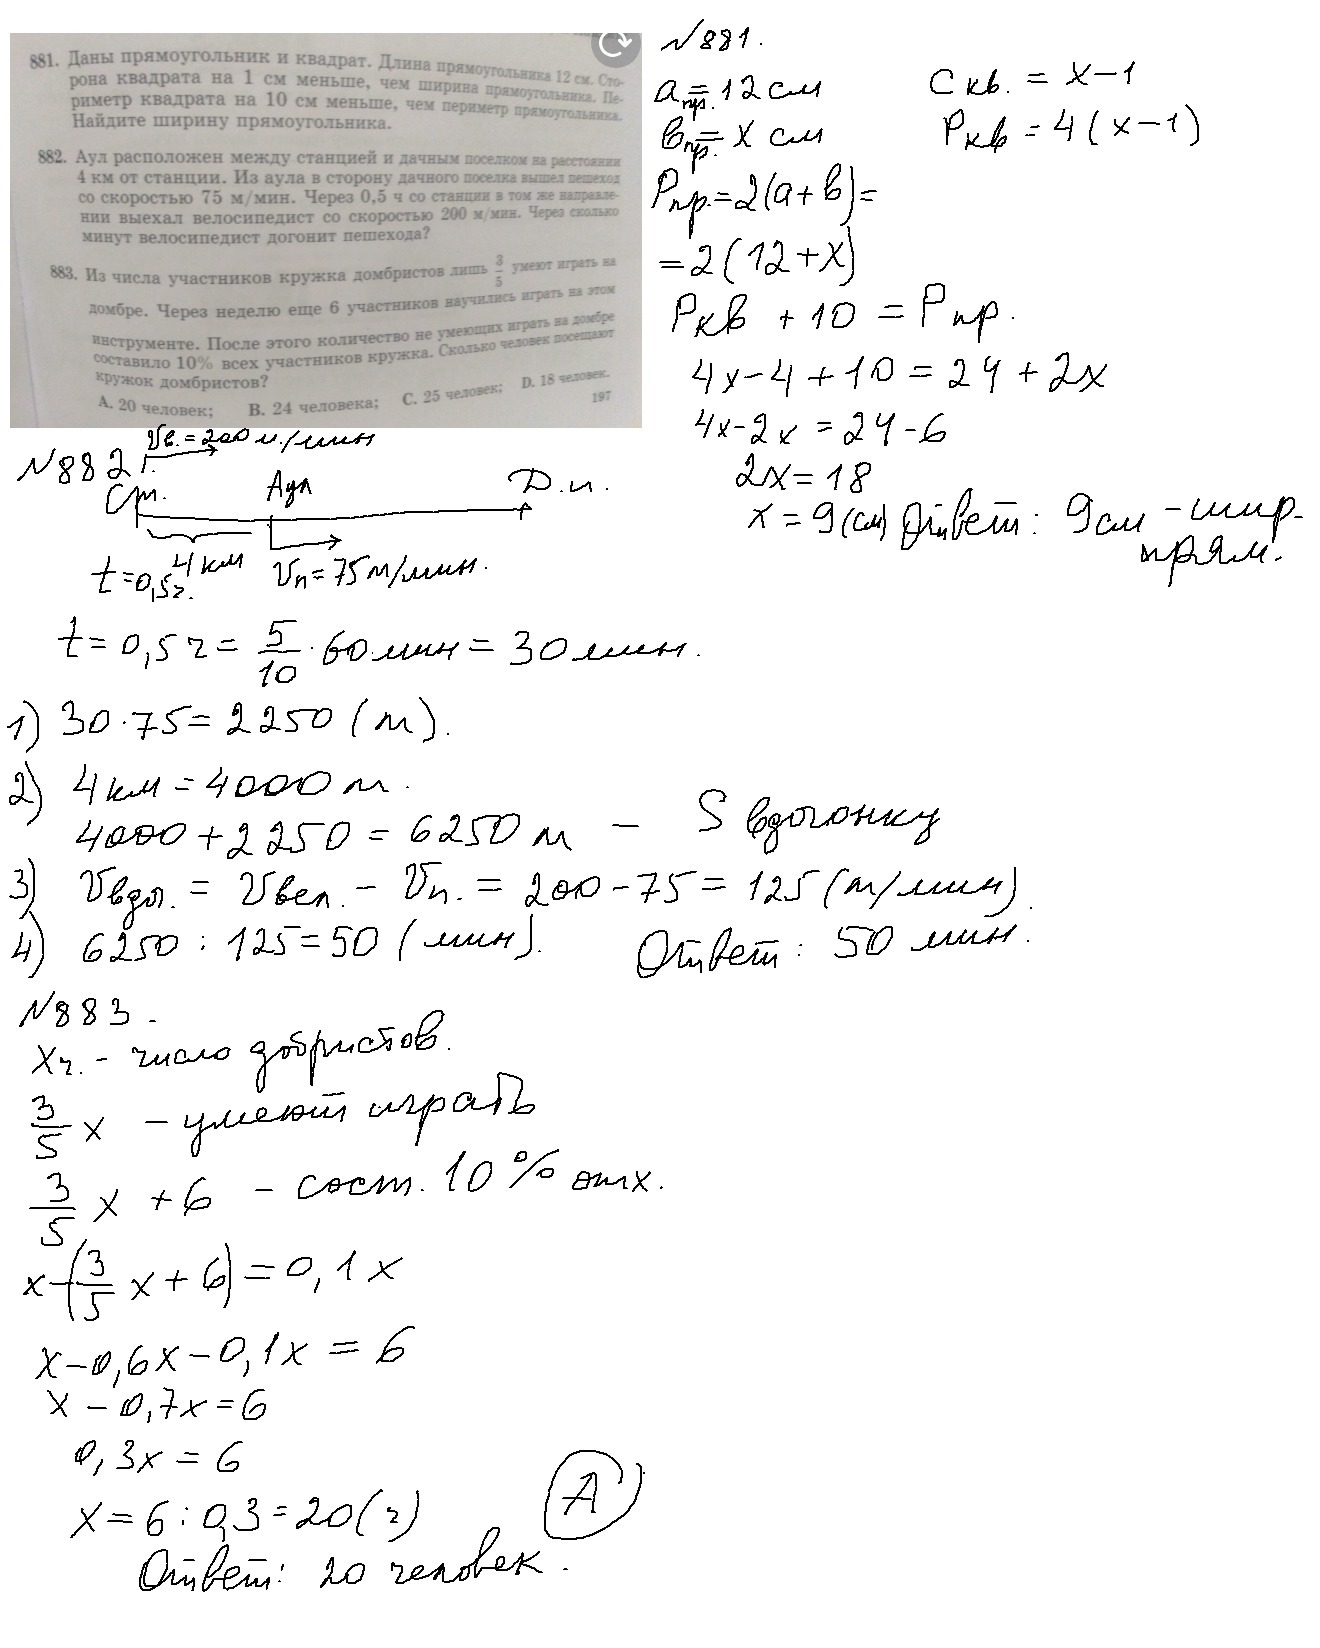 881. Даны прямоугольник и квадрат. Длина прямоугольника 12 см. Сто-
рона квадрата на 1 см меньше, чем ширина прямоугольника. Пе-
риметр квадрата на 10 см меньше, чем периметр прямоугольника.
Найдите ширину прямоугольника.
882. Аул расположен между станцией и дачным поселком на расстоянии
4 км от станции. Из аула в сторону дачного поселка вышел пешеход
со скоростью 75 м/мин. Через 0,5 ч со станции в том же направле-
нии выехал велосипедист со скоростью 200 м/мин. Через сколько
минут велосипедист догонит пешехода?
883. Из числа участников кружка домбристов лишь 3/5 умеют играть на
домбре. Через неделю еще 6 участников научились играть на этом
инструменте. После этого количество не умеющих играть на домбре
составило 10% всех участников кружка. Сколько человек посещают
кружок домбристов?
A. 20 человек; B. 24 человека; C. 25 человек; D. 18 человек.
197
№881.
a пр. = 12 см
в пр. = x см
Pпр. = 2(a+в) =
= 2(12+x)
C кв. = x-1
Pкв = 4(x-1)
Pкв + 10 = Pпр.
4x-4+10 = 24+2x
4x-2x = 24-6
2x = 18
x = 9(см) Ответ: 9см - шир.
прям.
№882.
Vв. = 200 м/мин
Ст. Аул Д.п.
4 км
t=0,5ч. Vп = 75 м/мин.
t = 0,5 ч = 5/10 · 60 мин = 30 мин.
1) 30·75 = 2250 (м).
2) 4 км = 4000 м.
4000 + 2250 = 6250 м - S вдогонку
3) Vвдог. = Vвел. - Vп. = 200-75 = 125 (м/мин).
4) 6250 : 125 = 50 (мин). Ответ: 50 мин.
№883.
xч. - число добристов.
3/5 x - умеют играть
3/5 x + 6 - сост. 10% от x.
x-(3/5 x + 6) = 0,1x
x-0,6x-0,1x = 6
x - 0,7x = 6
0,3x = 6
x = 6 : 0,3 = 20(ч)
A
Ответ: 20 человек.